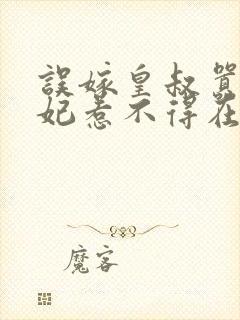 誤嫁皇叔
妃惹不得在
魔客